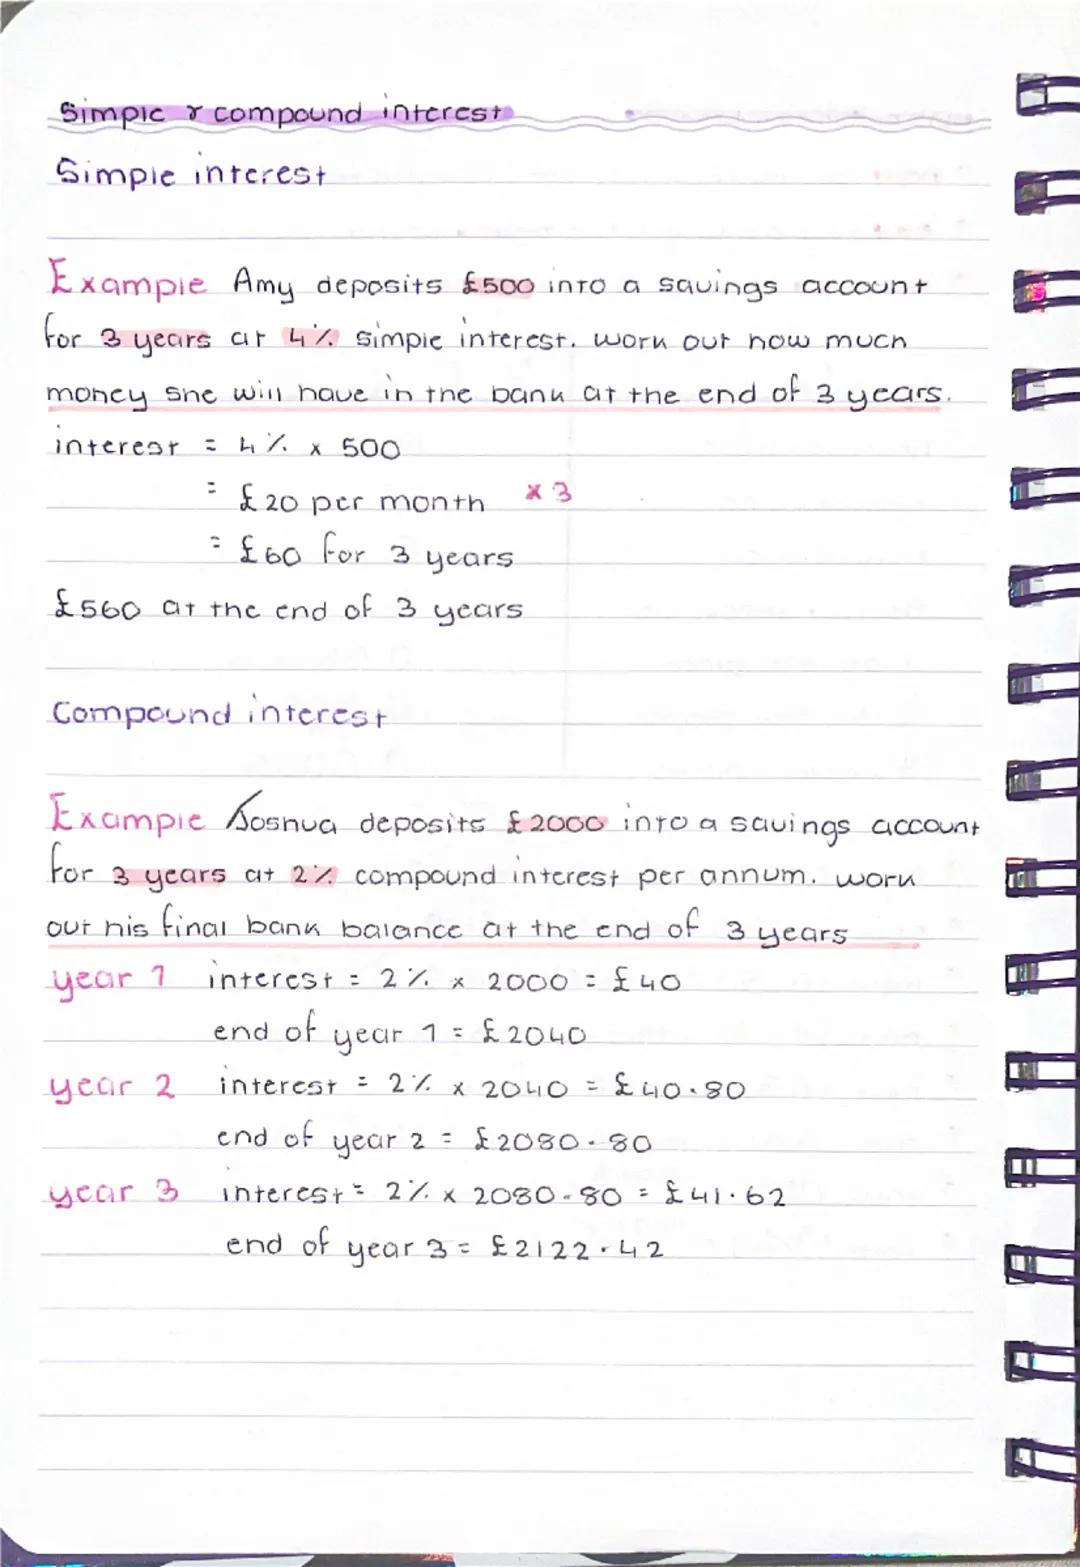 Simple & compound interest
Simple interest
Example Amy deposits £500 into a savings account
for 3 years at 4% simple interest. work out how much
money she will have in the bank at the end of 3 years.
interest = 4% x 500
= £20 per month x 3
= £60 for 3 years
£560 at the end of 3 years
Compound interest
Example Joshua deposits £2000 into a savings account
for 3 years at 2% compound interest per annum. work
out his final bank balance at the end of 3 years
year 1 interest = 2% x 2000 = £40
end of year 1 = £2040
year 2 interest = 2% x 2040 = £40.80
end of year 2 = £2080.80
year 3 interest = 2% x 2080.80 = £41.62
end of year 3 = £2122.42